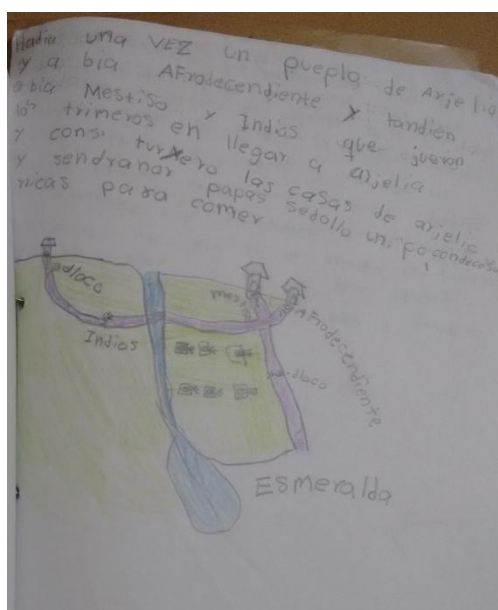 Hadia una VEZ un pueplo de Arjelia
y a bia AFrodecendiente y tandien
abia Mestiso y Indios que jueron
los trimeros en llegar a arjelia
y consi turxero las casas de arjelia
y sendranar papas sedollo un po
nicas para comer
adloco
Indios
mesti
AFrodecendiente
adloco
Esmeralda